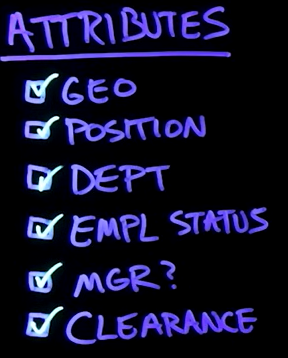 ATTRIBUTES
GEO
POSITION
DEPT
EMPL STATUS
MGR?
CLEARANCE